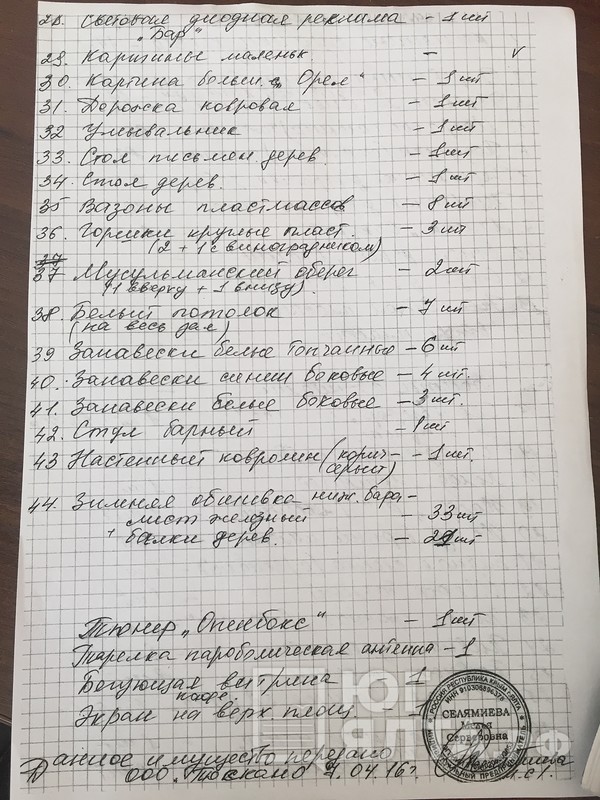 28. Световая диодная реклама - 1 шт
„Бар"
29. Картины маленьк - v
30. Картина больш. „Орел" - 1 шт
31. Дорожка ковровая - 1 шт
32 Умывальник - 1 шт
33. Стол письмен дерев. - 1 шт
34. Стол дерев. - 1 шт
35 Вазоны пластмассов - 8 шт
36. Горшки круглые пласт. - 3 шт
(2 + 1 с виноградником)
37 Мусульманский оберег - 2 шт
(1 вверху + 1 внизу).
38. Белый потолок - 7 шт
(на весь зал)
39 Занавески белые Топчанные - 6 шт
40. Занавески синии боковые - 4 шт.
41. Занавески белые боковые - 3 шт.
42. Стул барный - 1 шт
43 Настенный ковролин (корич- - 1 шт.
серый)
44. Зимняя обшивка ниж. бара -
лист железный - 33 шт
+ балки дерев. - шт
Тюнер „Опенбокс" - 1 шт
Тарелка пароболическая антенна - 1
Бегующая витрина 1
Экран на верх. площ. 1
Данное имущество передано
ООО. Тоскано 7.04.16г.
РОССИЯ РЕСПУБЛИКА КРЫМ г. ЯЛТА
ИНДИВИДУАЛЬНЫЙ ПРЕДПРИНИМАТЕЛЬ
СЕЛЯМИЕВА
Серверовна